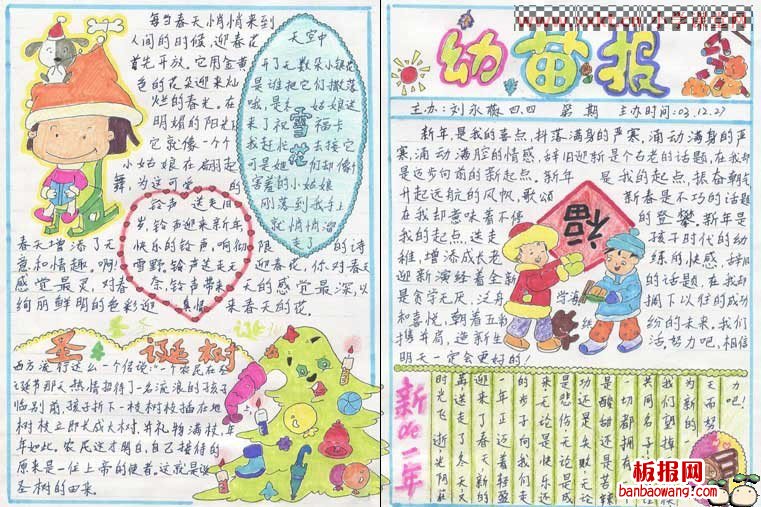 每当春天悄悄来到
人间的时候,迎春花
首先开放。它用金黄
色的花朵迎来灿
烂的春光。在
明媚的阳光
它就像一个个
小姑娘在翩翩起
舞,为这可爱的
春天增添了无限的诗
意和情趣。啊!迎春花,你对春天
感觉最灵,对春天的感觉最深,以
绚丽鲜明的色彩迎来春天的花。
铃声送走旧
岁,铃声迎来新年,
快乐的铃声,响彻
雪野,铃声送走无
奈,铃声带来
真情
天空中
开了无数朵小银花
是谁把它们撒落
哦,是姑娘送
来了祝福卡
我赶忙去接它
可是她们却像
害羞的小姑娘
刚落到我手上
就悄悄溜
走了
雪花
圣诞树
西方流行这么一个传说:一个农民在圣
诞节那天热情招待了一名流浪的孩子
临别前,孩子折下一枝树枝插在地
树枝立即长成大树,并礼物满枝,年
年如此。农民这才明白,自己接待的
原来是一位上帝的使者。这就是说
圣树的由来。
幼苗报
主办:刘永薇 四.四 第 期 主办时间:03.12.27
新年,是我的春点,抖落满身的严寒,涌动满身的严
寒,涌动满腔的情感,辞旧迎新是个古老的话题,在我却
是迈步向前的新起点,新年是我的起点,振奋朝气
升起远航的风帆,歌颂新春是不朽的话题
在我却意味着不停的登攀。新年是
我的起点,送走孩子时代的幼
稚,增添成长老练的快感,辞旧
迎新演绎着全新的话题,在我却
是贪学无厌,泛舟学海,摘下以往的成功
和喜悦,朝着五彩缤纷的未来。我们
携并肩,迎新生活努力吧,相信
明天一定会更好的!
福
新的一年
时光飞逝,光阴
再送走了冬天又
迎来了春天,新的
一年正迈着轻盈
的步子向我们走
来,无论是快乐还
是悲伤,无论是成
功还是失败,无论
是酸甜还是苦辣
板报网
banbaowang.com